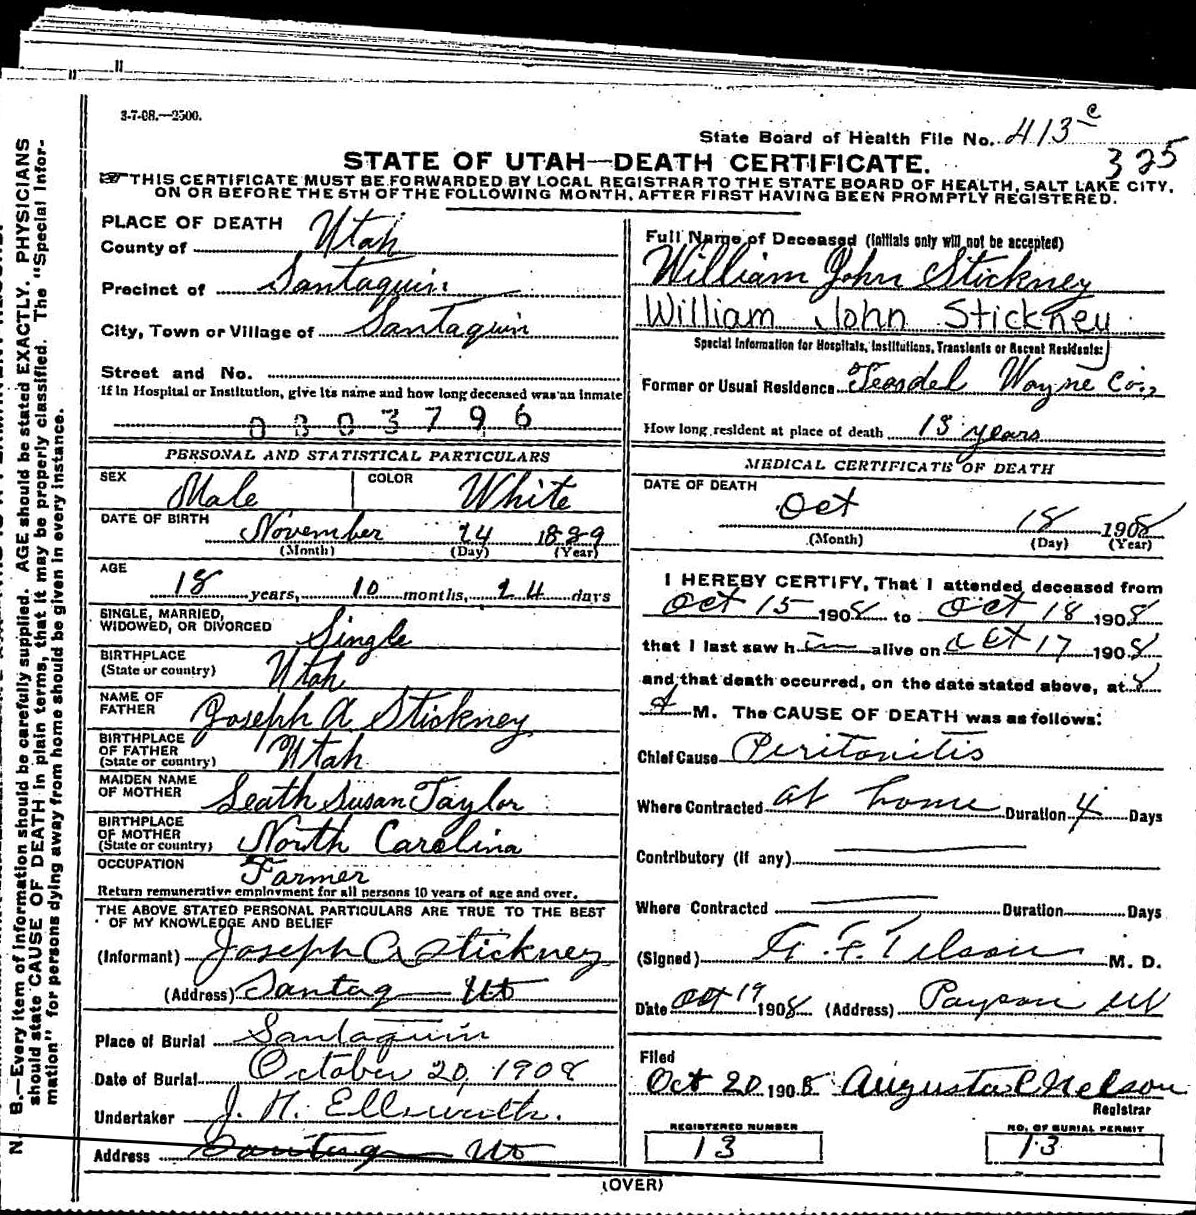 3-7-08.—2500.
State Board of Health File No. 413 c
325
STATE OF UTAH—DEATH CERTIFICATE.
THIS CERTIFICATE MUST BE FORWARDED BY LOCAL REGISTRAR TO THE STATE BOARD OF HEALTH, SALT LAKE CITY,
ON OR BEFORE THE 5TH OF THE FOLLOWING MONTH, AFTER FIRST HAVING BEEN PROMPTLY REGISTERED.
PLACE OF DEATH
County of Utah
Precinct of Santaquin
City, Town or Village of Santaquin
Street and No.
If in Hospital or Institution, give its name and how long deceased was an inmate
0803796
PERSONAL AND STATISTICAL PARTICULARS
SEX Male COLOR White
DATE OF BIRTH November 24 1889
(Month) (Day) (Year)
AGE
18 years, 10 months, 24 days
SINGLE, MARRIED,
WIDOWED, OR DIVORCED Single
BIRTHPLACE
(State or country) Utah
NAME OF
FATHER Joseph A Stickney
BIRTHPLACE
OF FATHER
(State or country) Utah
MAIDEN NAME
OF MOTHER Leath Susan Taylor
BIRTHPLACE
OF MOTHER
(State or country) North Carolina
OCCUPATION Farmer
Return remunerative employment for all persons 10 years of age and over.
THE ABOVE STATED PERSONAL PARTICULARS ARE TRUE TO THE BEST
OF MY KNOWLEDGE AND BELIEF
(Informant) Joseph A Stickney
(Address) Santaq Ut
Place of Burial Santaquin
Date of Burial October 20, 1908
Undertaker J. H. Ellsworth.
Address Santaq Ut
Full Name of Deceased (initials only will not be accepted)
William John Stickney
William John Stickney
Special Information for Hospitals, Institutions, Transients or Recent Residents:
Former or Usual Residence Teasdel Wayne Co.,
How long resident at place of death 13 years
MEDICAL CERTIFICATE OF DEATH
DATE OF DEATH
Oct 18 1908
(Month) (Day) (Year)
I HEREBY CERTIFY, That I attended deceased from
Oct 15 1908 to Oct 18 1908
that I last saw h im alive on Oct 17 1908
and that death occurred, on the date stated above, at 8
A M. The CAUSE OF DEATH was as follows:
Chief Cause Peritonitis
Where Contracted at home Duration 4 Days
Contributory (if any)
Where Contracted Duration Days
(Signed) M. D.
Date Oct 19 1908 (Address) Payson Ut
Filed
Oct 20 1908 Augusta C Nelson
Registrar
REGISTERED NUMBER
13
NO. OF BURIAL PERMIT
13
(OVER)
N. B.—Every item of information should be carefully supplied. AGE should be stated EXACTLY. PHYSICIANS
should state CAUSE OF DEATH in plain terms, that it may be properly classified. The "Special Infor-
mation" for persons dying away from home should be given in every instance.